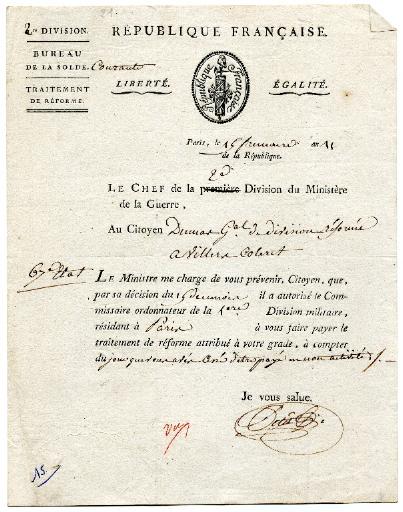 21.
2e DIVISION.
RÉPUBLIQUE FRANÇAISE.
BUREAU
DE LA SOLDE. Courante
TRAITEMENT
DE RÉFORME.
LIBERTÉ.
République Française
ÉGALITÉ.
Paris, le 15 frimaire an 11
de la République.
2e
LE CHEF de la première Division du Ministère
de la Guerre,
Au Citoyen Dumas Gal de division réformé
a Villers Coteret
67e Etat
LE Ministre me charge de vous prévenir, Citoyen, que,
par sa décision du il a autorisé le Com-
missaire ordonnateur de la 1ere Division militaire,
résidant à Paris à vous faire payer le
traitement de réforme attribué à votre grade, à compter
du jour que vous avés cessé d'etre payé en non activité /.
Je vous salue.
15.